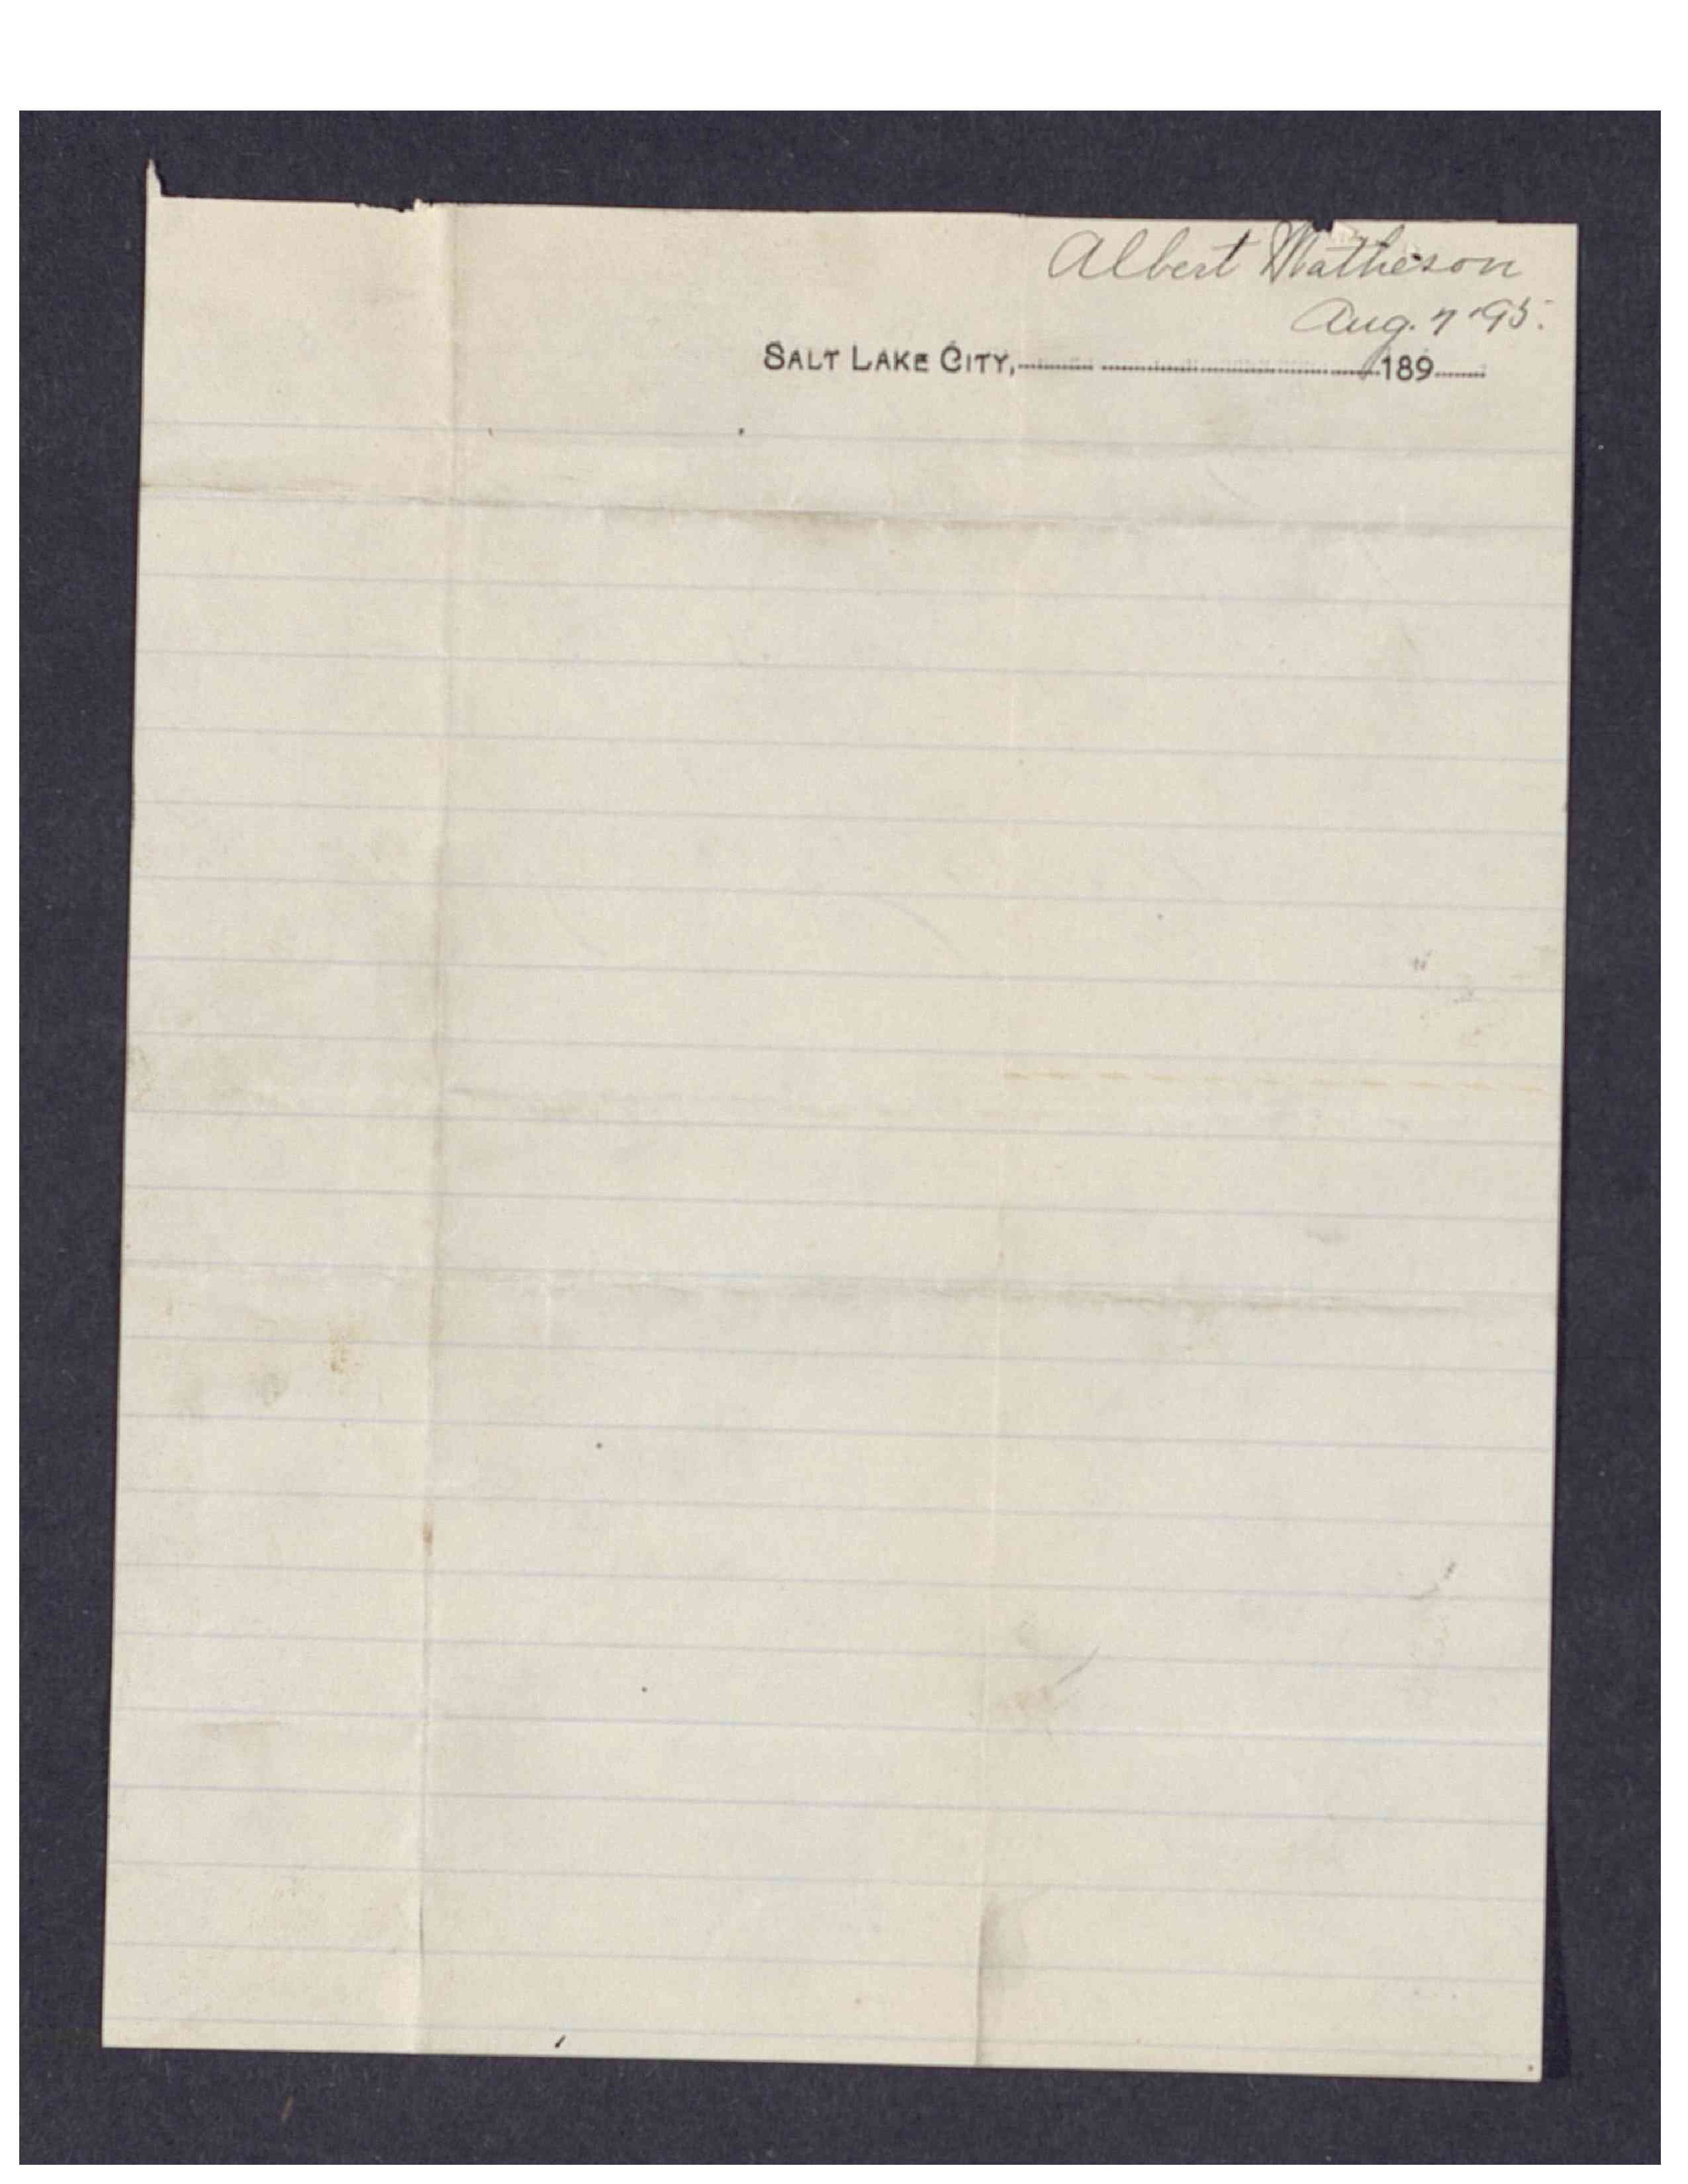 Albert Matheson
Aug. 7 '95.
SALT LAKE CITY, 189